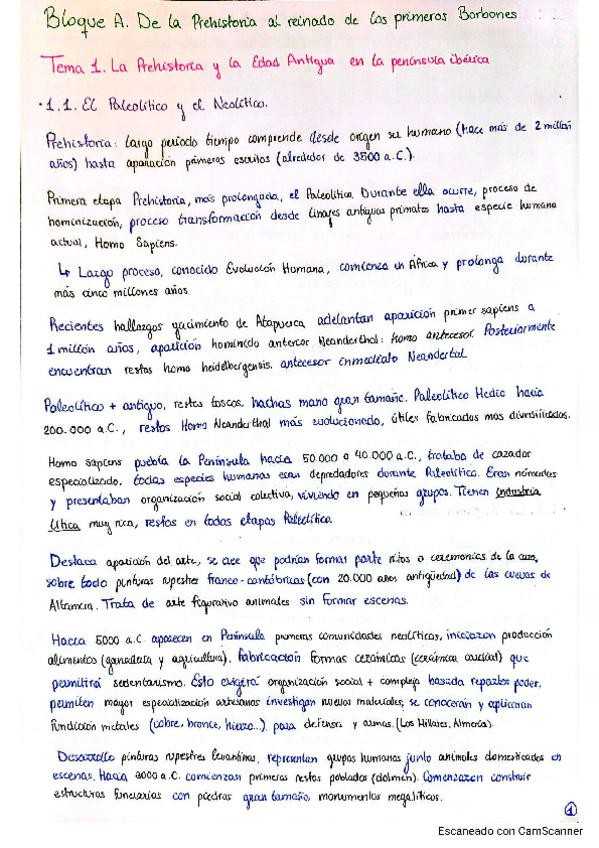 Bloque A. De la Prehistoria al reinado de los primeros Borbones
Tema 1. La Prehistoria y la Edad Antigua en la península ibérica
·1.1. El Paleolítico y el Neolítico.
Prehistoria: largo periodo tiempo comprende desde origen ser humano (hace más de 2 millón
años) hasta aparición primeros escritos (alrededor de 3500 a.C.).
Primera etapa Prehistoria, más prolongada, el Paleolítico. Durante ella ocurre, proceso de
hominización, proceso transformación desde linajes antiguos primates hasta especie humana
actual, Homo Sapiens.
↳ Largo proceso, conocido Evolución Humana, comienza en África y prolonga durante
más cinco millones años.
Recientes hallazgos yacimiento de Atapuerca adelantan aparición primer sapiens a
1 millón años, aparición homínido anterior Neanderthal: homo antecesor. Posteriormente
encuentran restos homo heidelbergensis, antecesor inmediato Neandertal.
Paleolítico + antiguo, restos toscos, hachas mano gran tamaño. Paleolítico Medio hacia
200.000 a.C., restos Homo Neanderthal más evolucionado, útiles fabricados mas diversificados.
Homo sapiens puebla la Península hacia 50.000 o 40.000 a.C., trataba de cazador
especializado, todas especies humanas eran depredadores durante Paleolítico. Eran nómadas
y presentaban organización social colectiva, viviendo en pequeños grupos. Tienen industria
lítica muy rica, restos en todas etapas Paleolítico.
Destaca aparición del arte, se cree que podrían formar parte ritos o ceremonias de la caza,
sobre todo pinturas rupestres franco-cantábricas (con 20.000 años antigüedad) de las cuevas de
Altamira. Trata de arte figurativo animales sin formar escenas.
Hacia 5000 a.C. aparecen en Península primeras comunidades neolíticas, iniciaron producción
alimentos (ganadería y agricultura). Fabricación formas cerámicas (cerámica cardial) que
permitirá sedentarismo. Esto exigirá organización social + compleja basada repartos poder,
permiten mayor especialización artesanos investigan nuevos materiales, se conocerán y aplicaran
fundición metales (cobre, bronce, hierro...). para defensa y armas. (Los Millares, Almería).
Desarrollo pinturas rupestres levantinas, representan grupos humanos junto animales domesticados en
escenas. Hacia 3000 a.C. comienzan primeros restos poblados (dolmén). Comenzaron construir
estructuras funerarias con piedras gran tamaño, monumentos megalíticos.
1
Escaneado con CamScanner